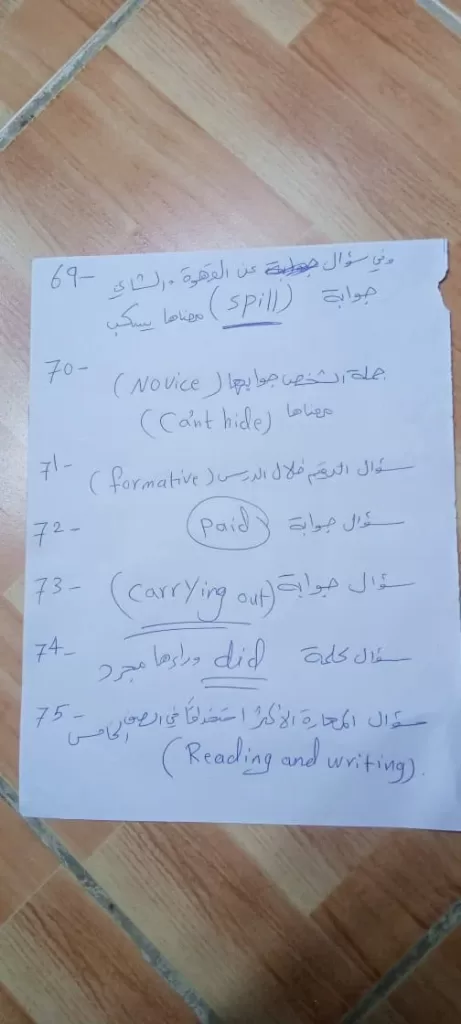 69- وفي سؤال جوابة عن القهوة والشاي
جوابة (spill) معناها يسكب
70- جملة الشخص جوابها (Novice)
معناها (Ca'nt hide)
71- سؤال الدعم خلال الدرس (formative)
72- سؤال جوابة paid
73- سؤال جوابة (Carrying out)
74- سؤال كلمة did وراءها مجرد
75- سؤال المهارة الأكثر استخداقًا في الصف الخامس
(Reading and writing).